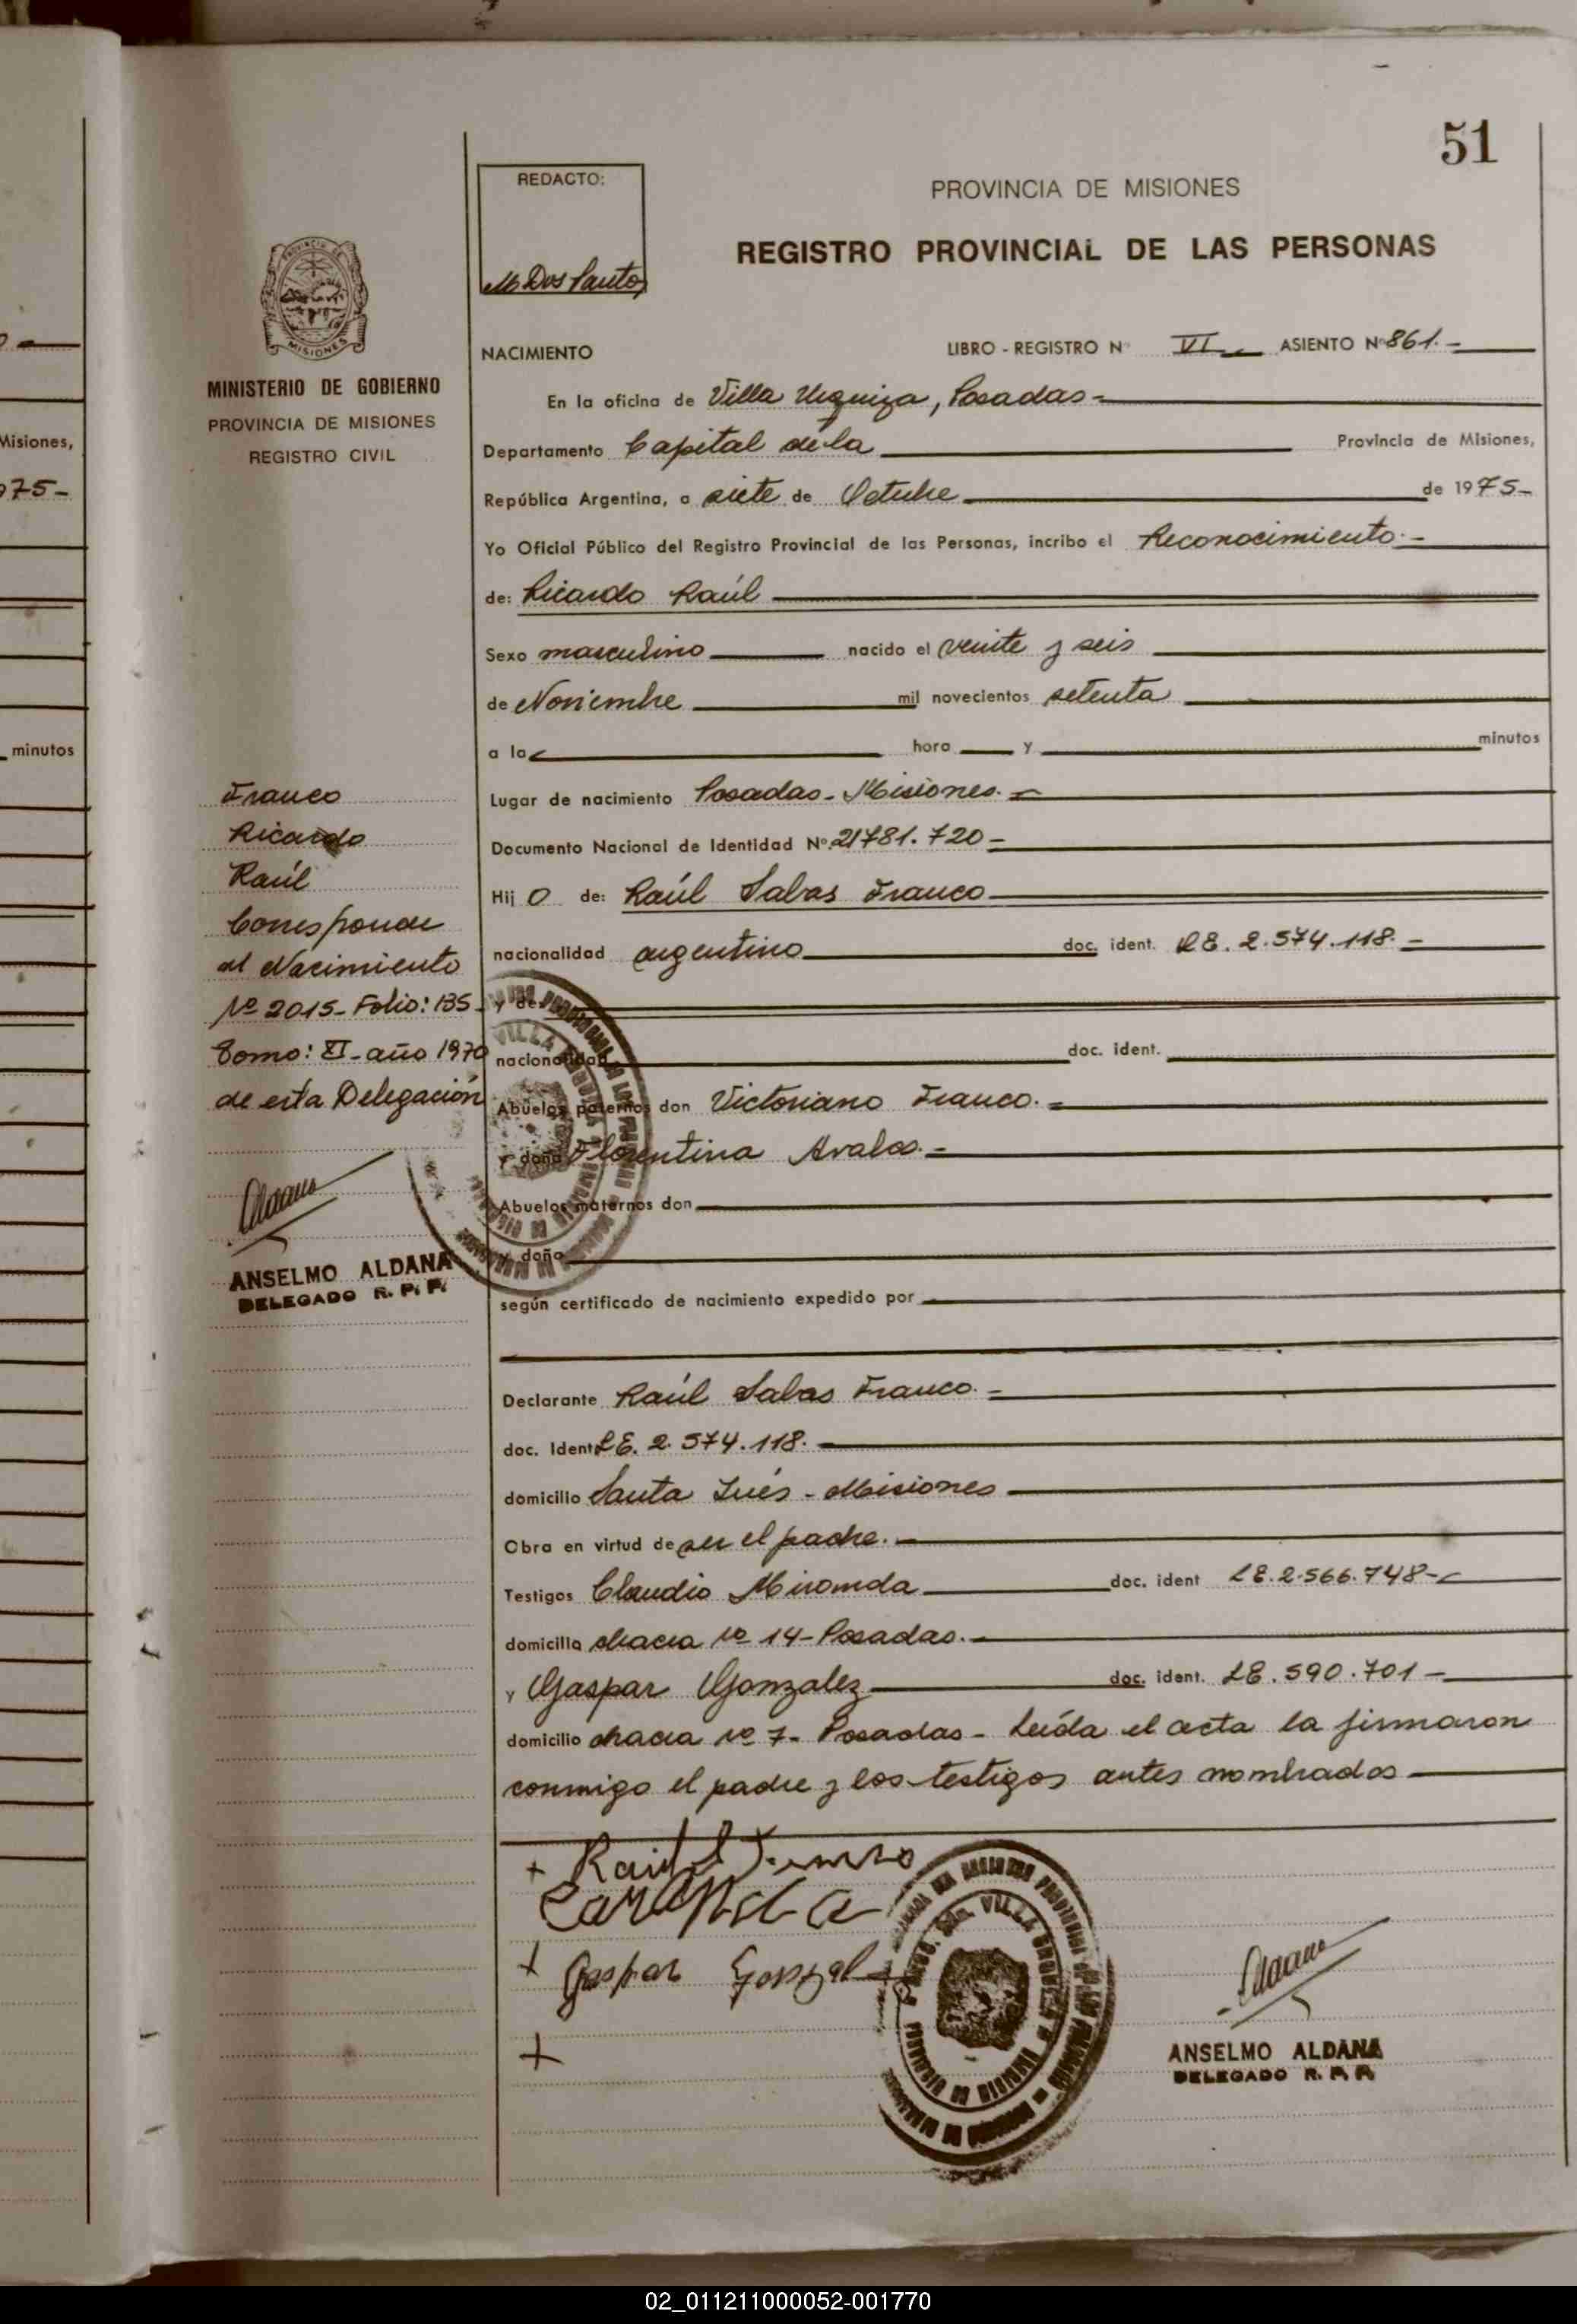 51
REDACTO:
M Dos Santos
PROVINCIA DE MISIONES
REGISTRO PROVINCIAL DE LAS PERSONAS
PROVINCIA DE
MISIONES
MINISTERIO DE GOBIERNO
PROVINCIA DE MISIONES
REGISTRO CIVIL
NACIMIENTO LIBRO - REGISTRO Nº VI ASIENTO Nº 861.-
En la oficina de Villa Urquiza, Posadas-
Departamento Capital de la Provincia de Misiones,
República Argentina, a siete de Octubre de 1975-
Yo Oficial Público del Registro Provincial de las Personas, incribo el Reconocimiento.-
de: Ricardo Raúl
Sexo masculino nacido el veinte y seis
de Noviembre mil novecientos setenta
a la hora y minutos
Lugar de nacimiento Posadas - Misiones.-
Documento Nacional de Identidad Nº 21781.720-
Hij o de: Raúl Sabas Franco
nacionalidad argentino doc. ident. LE. 2.574.118.-
y de:
nacionalidad doc. ident.
Abuelos paternos don Victoriano Franco.-
y doña Florentina Avalos.-
Abuelos maternos don
y doña
según certificado de nacimiento expedido por
Declarante Raúl Sabas Franco.-
doc. Ident LE. 2.574.118.-
domicilio Santa Inés - Misiones
Obra en virtud de ser el padre.-
Testigos Claudio Miranda doc. ident LE. 2.566.748-
domicilio chacra Nº 14- Posadas.-
y Gaspar Gonzalez doc. ident. LE. 590.701-
domicilio chacra Nº 7- Posadas- Leída el acta la firmaron
conmigo el padre y los testigos antes nombrados
Franco
Ricardo
Raúl
Corresponde
al Nacimiento
Nº 2015- Folio: 135-
Tomo: XI- año 1970
de esta Delegación
Aldana
ANSELMO ALDANA
DELEGADO R. P. P.
+ Raúl S Franco
+ Gaspar Gonzalez
+
VILLA URQUIZA
Aldana
ANSELMO ALDANA
DELEGADO R. P. P.
Misiones,
975-
minutos
02_011211000052-001770